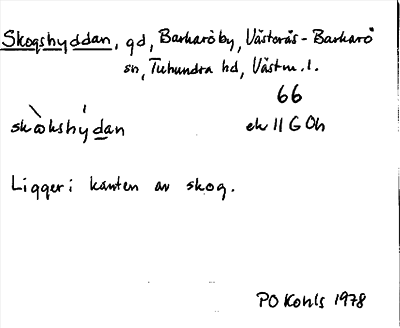 Skogshyddan, gd, Barkaröby, Västerås-Barkarö
sn, Tuhundra hd, Västm. l.
66
skoκshỳdan
ek 11 G 0h
Ligger i kanten av skog.
PO Kohls 1978